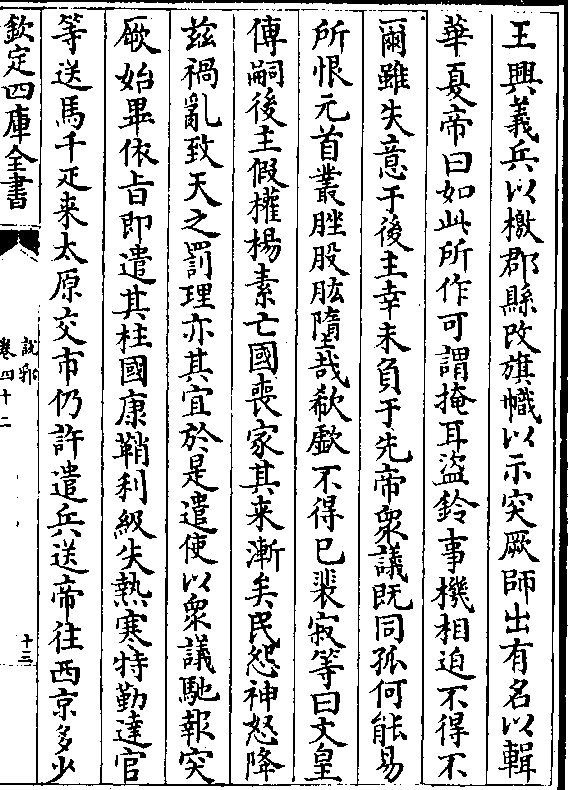 王興義兵以檄郡縣改旗幟以示突厥師出有名以輯
華夏帝曰如此所作可謂掩耳盜鈴事機相迫不得不
爾雖失意于後主幸未負于先帝衆議既同孤何能易
所恨元首叢脞股肱墮哉欷歔不得已裴寂等曰文皇
傳嗣後主假權楊素亡國喪家其来漸矣民怨神怒降
兹禍亂致天之罰理亦其宜於是遣使以衆議馳報突
厥始畢依旨即遣其柱國康鞘利級失熱寒特勤達官
等送馬千疋来太原交市仍許遣兵送帝往西京多少
欽定四庫全書
說郛
卷四十二
十三